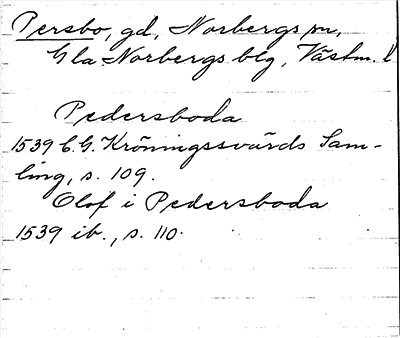 Persbo, gd, Norbergs sn,
Gla Norbergs blg, Västm. l
Pedersboda
1539 C.G. Kröningssvärds Sam-
ling, s. 109.
Olof i Pedersboda
1539 ib., s. 110.